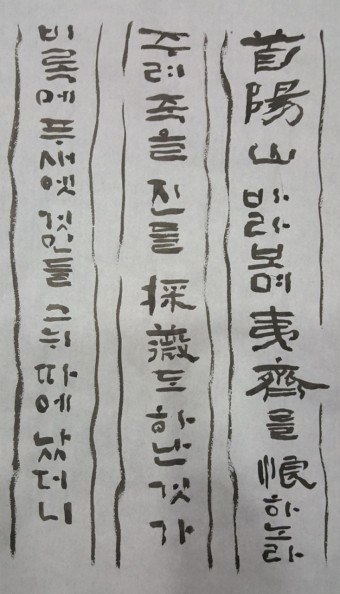 首陽山 바라보며 夷齊을 恨하노라
주려 죽을 진들 採薇도 하난 것가
비록에 푸새엣 것인들 그 뉘 따에 났더니